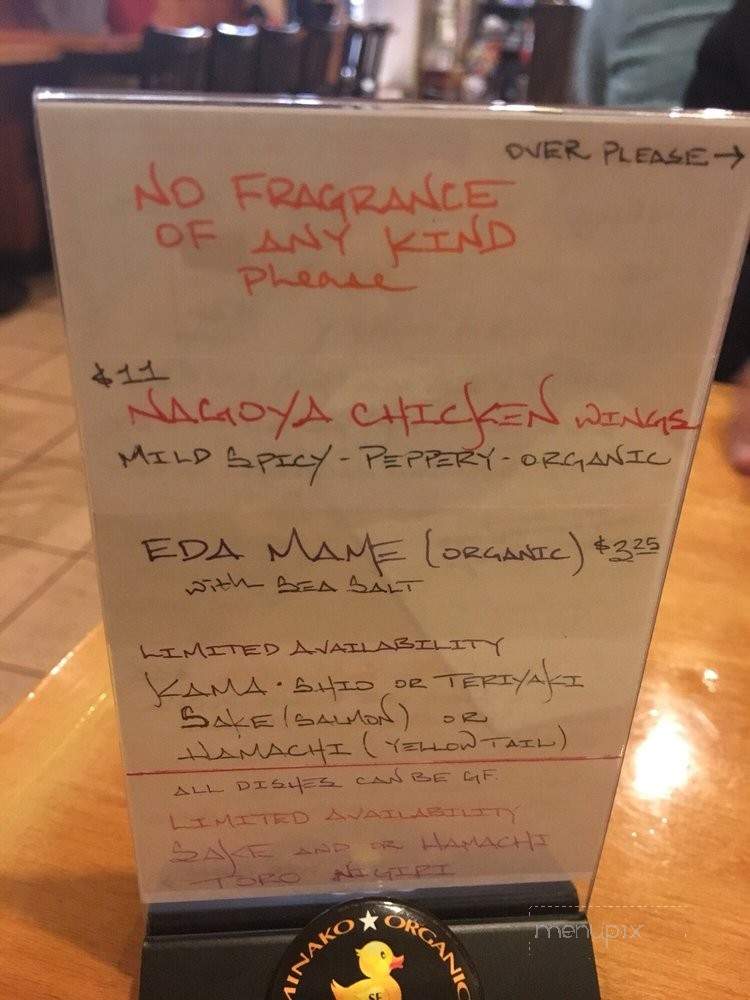 OVER PLEASE →
NO FRAGRANCE
OF ANY KIND
Please
$11
NAGOYA CHICKEN WINGS
MILD SPICY - PEPPERY - ORGANIC
EDA MAME (ORGANIC) $3.25
with SEA SALT
LIMITED AVAILABILITY
KAMA · SHIO OR TERIYAKI
SAKE (SALMON) OR
HAMACHI (YELLOW TAIL)
ALL DISHES CAN BE GF.
LIMITED AVAILABILITY
SAKE AND OR HAMACHI
TORO NIGIRI
MINAKO ★ ORGANIC
SF
menupix